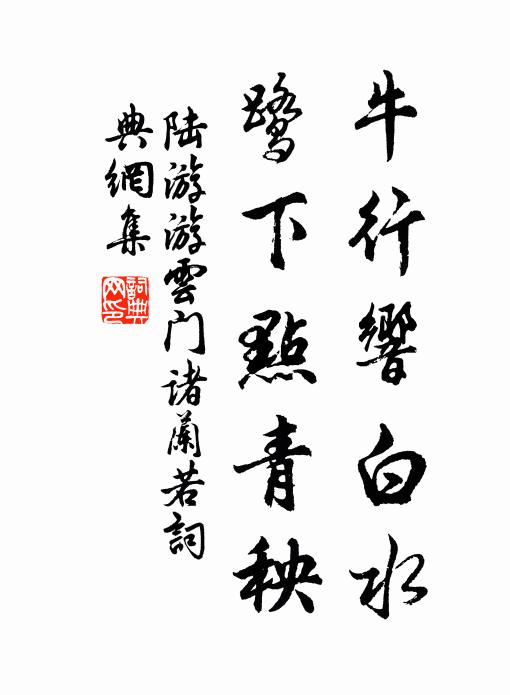 牛行響白水
鹭下點青秧
陆游游雲门诸蘭若詞
典網集
詞典
网印